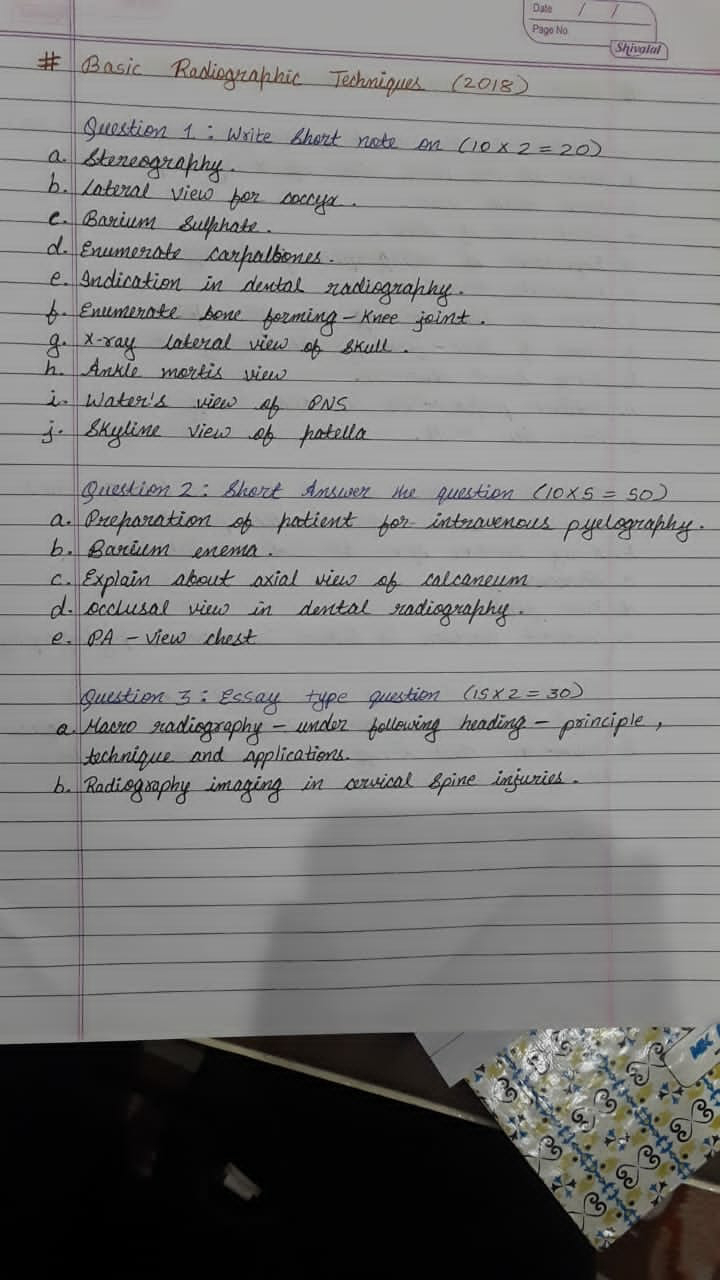 Date / /
Page No.
Shivalal
# Basic Radiographic Techniques (2018)
Question 1 : Write Short note on (10 x 2 = 20)
a. Stereography.
b. Lateral view for coccyx.
c. Barium Sulphate.
d. Enumerate carpalbones.
e. Indication in dental radiography.
f. Enumerate bone forming - Knee joint.
g. X-ray lateral view of skull.
h. Ankle mortis view
i. Water's view of PNS
j. Skyline view of patella
Question 2 : Short Answer the question (10x5 = 50)
a. Preparation of patient for intravenous pyelography.
b. Barium enema.
c. Explain about axial view of calcaneum
d. Occlusal view in dental radiography.
e. PA - view chest
Question 3 : Essay type question (15x2 = 30)
a. Macro radiography - under following heading - principle,
technique and applications.
b. Radiography imaging in cervical Spine injuries.